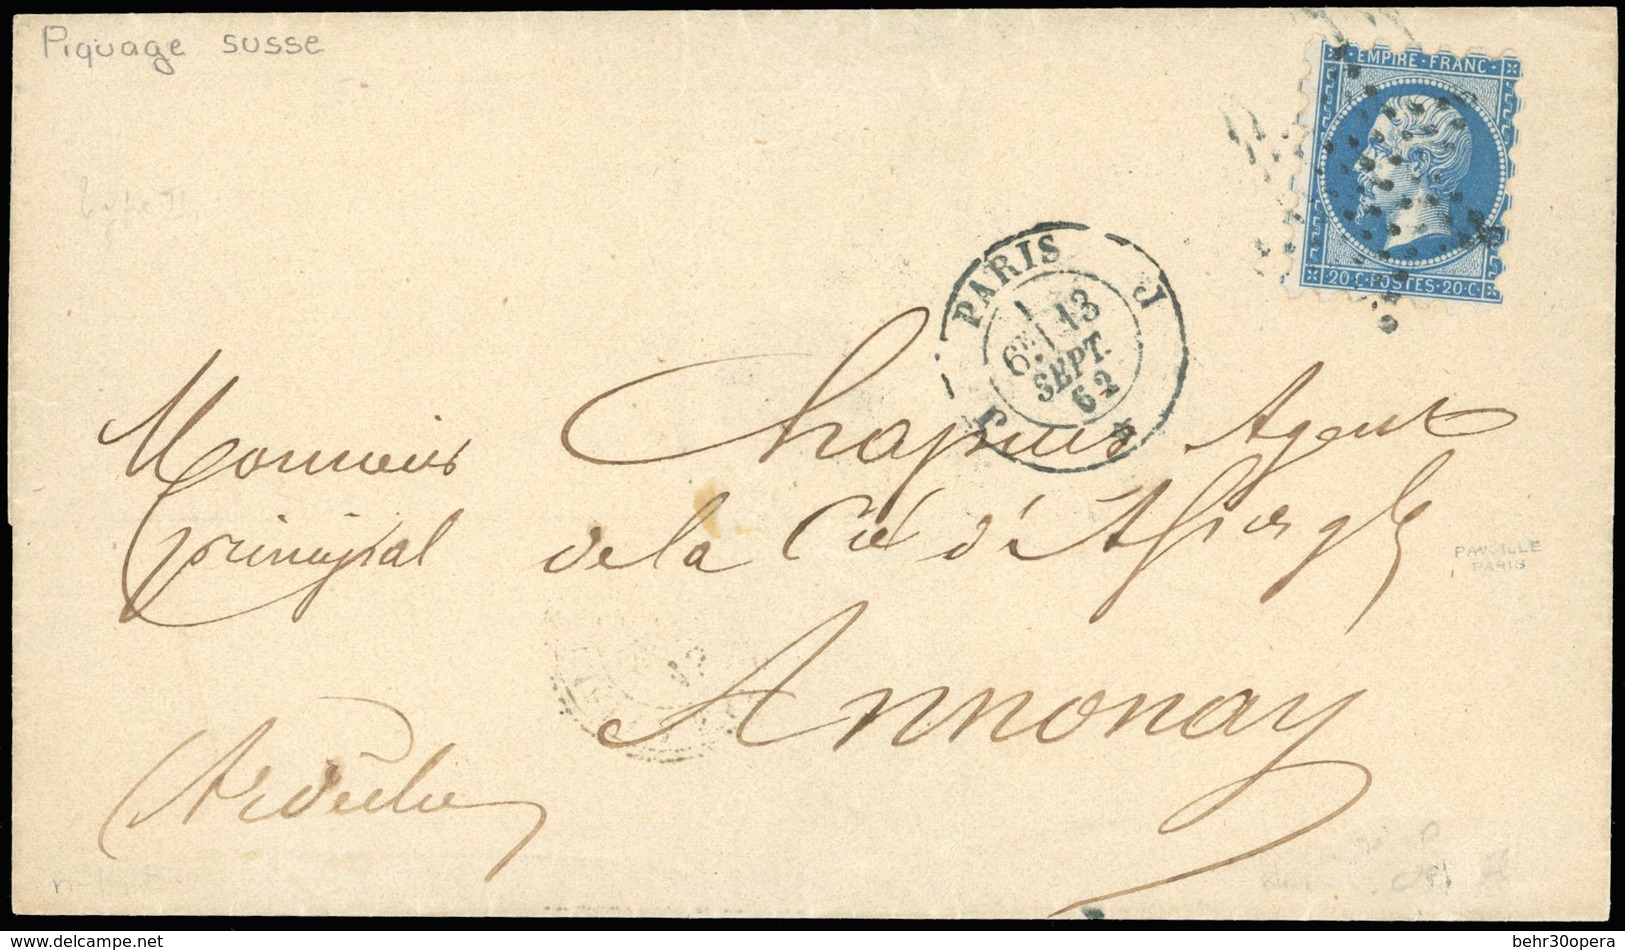 Piquage susse
EMPIRE · FRANC
20 C · POSTES · 20 C
type II
PARIS
J J
1
6E 13
SEPT.
62
4
Monsieur Chapuis Agent
principal de la Cie d'
PARIS
Annonay
Ardèche
www.delcampe.net
behr30opera